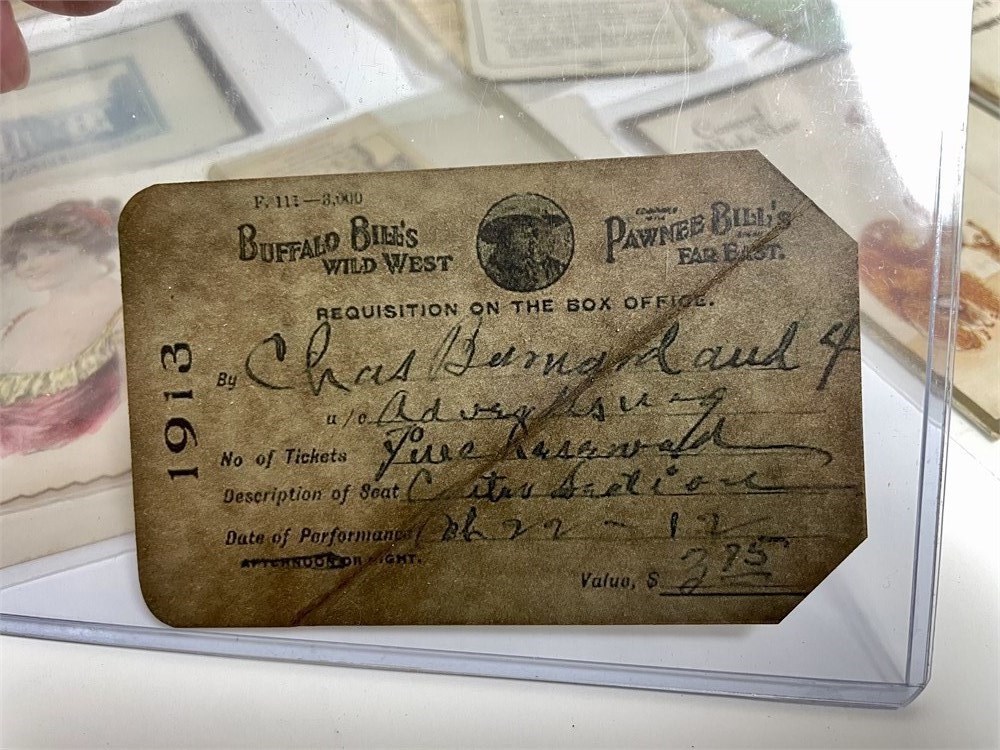 F. 111—3,000
BUFFALO BILL'S
WILD WEST
PAWNEE BILL'S
FAR EAST.
REQUISITION ON THE BOX OFFICE.
1913
By Chas and 4
a/c Advertising
No of Tickets Five
Description of Seat Section
Date of Performance 22 - 12
AFTERNOON OR NIGHT.
Value, $ 3 75